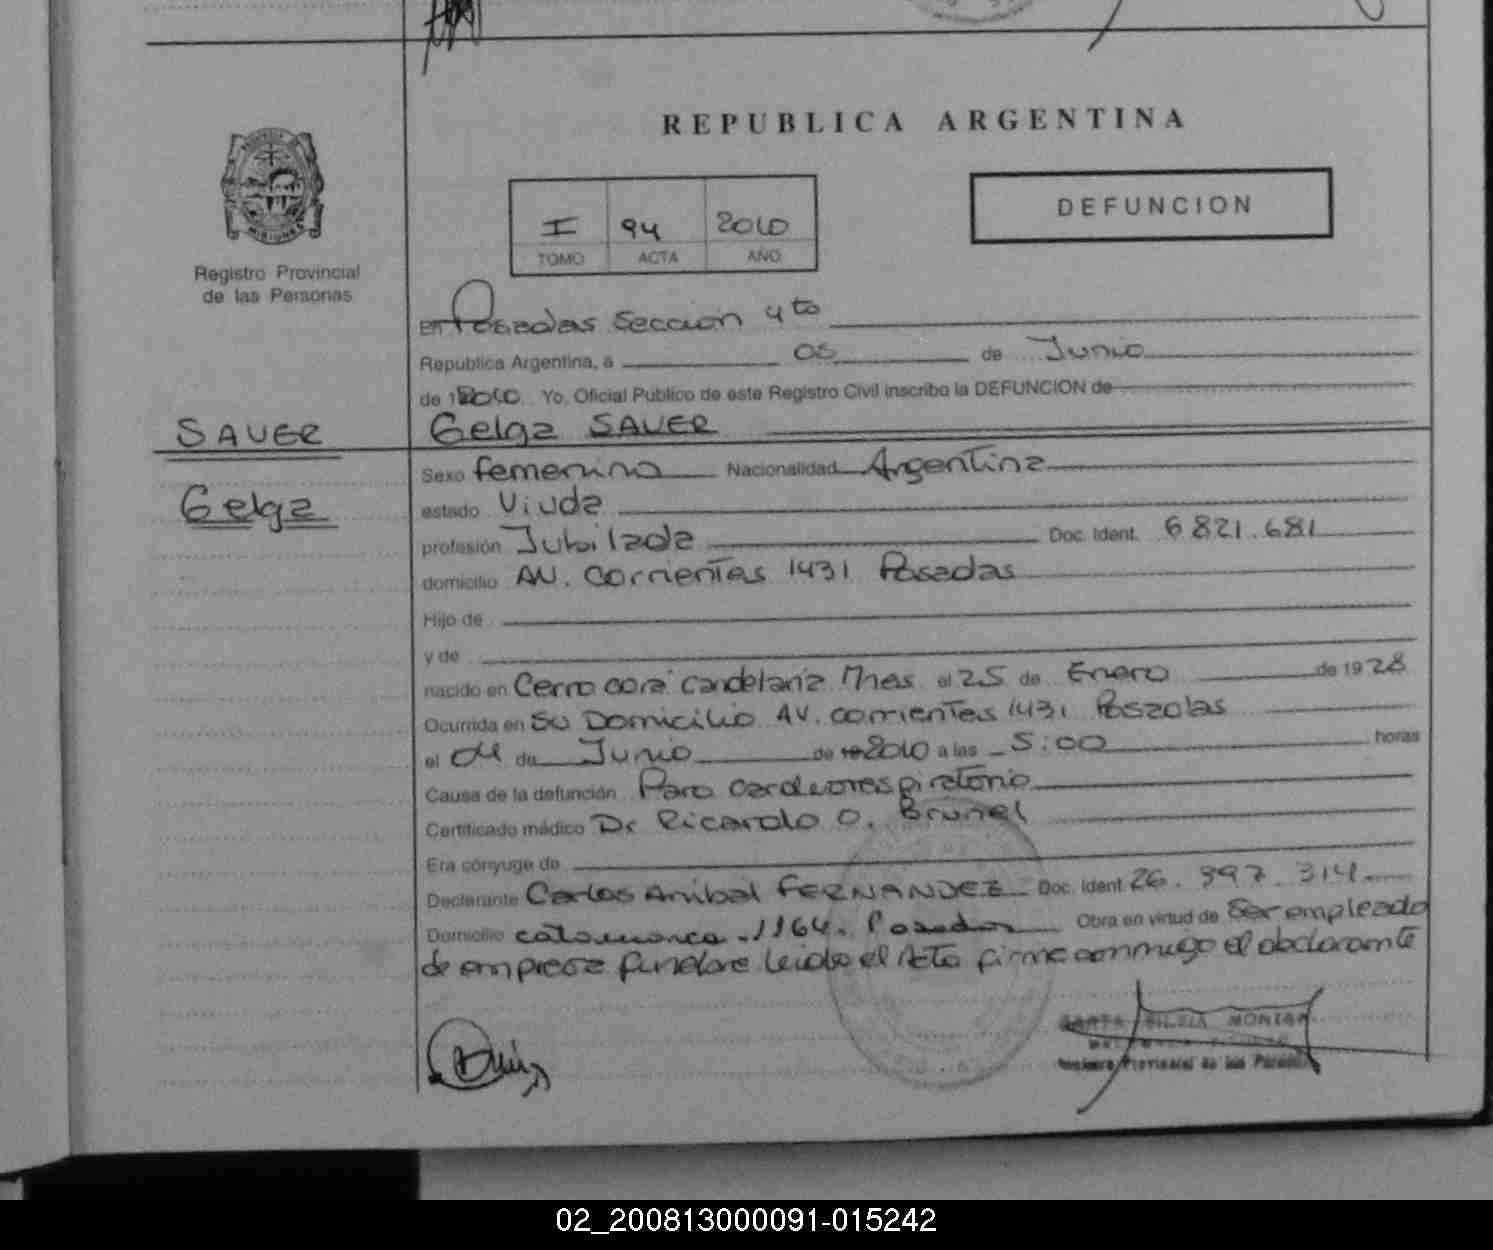 REPUBLICA ARGENTINA
DEFUNCION
I 94 2010
TOMO ACTA AÑO
MISIONES
Registro Provincial
de las Personas
En Posadas Sección 4to
Republica Argentina, a 05 de Junio
de 2010 Yo, Oficial Publico de este Registro Civil inscribo la DEFUNCION de
SAUER
Gelga SAUER
Gelga
Sexo femenino Nacionalidad Argentina
estado Viuda
profesión Jubilada Doc. Ident. 6 821.681
domicilio AV. Corrientes 1431 Posadas
Hijo de
y de
nacido en Cerro cora' Candelaria Mnes el 25 de Enero de 1928
Ocurrida en su Domicilio AV. corrientes 1431 Posadas
el 04 de Junio de 2010 a las 5:00 horas
Causa de la defunción Paro cardiorespiratorio
Certificado médico Dr Ricardo O. Brunel
Era cónyuge de
Declarante Carlos Anibal FERNANDEZ Doc. Ident. 26.997.314
Domicilio catamarca 1164. Posadas Obra en virtud de Ser empleado
de empresa funebre leida el Acta firma conmigo el declarante
MONICA
Provincial de las Personas
02_200813000091-015242